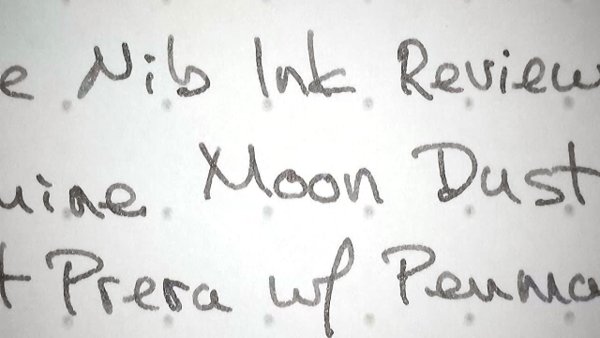 e Nib Ink Review
uine Moon Dust
t Prera w/ Penma